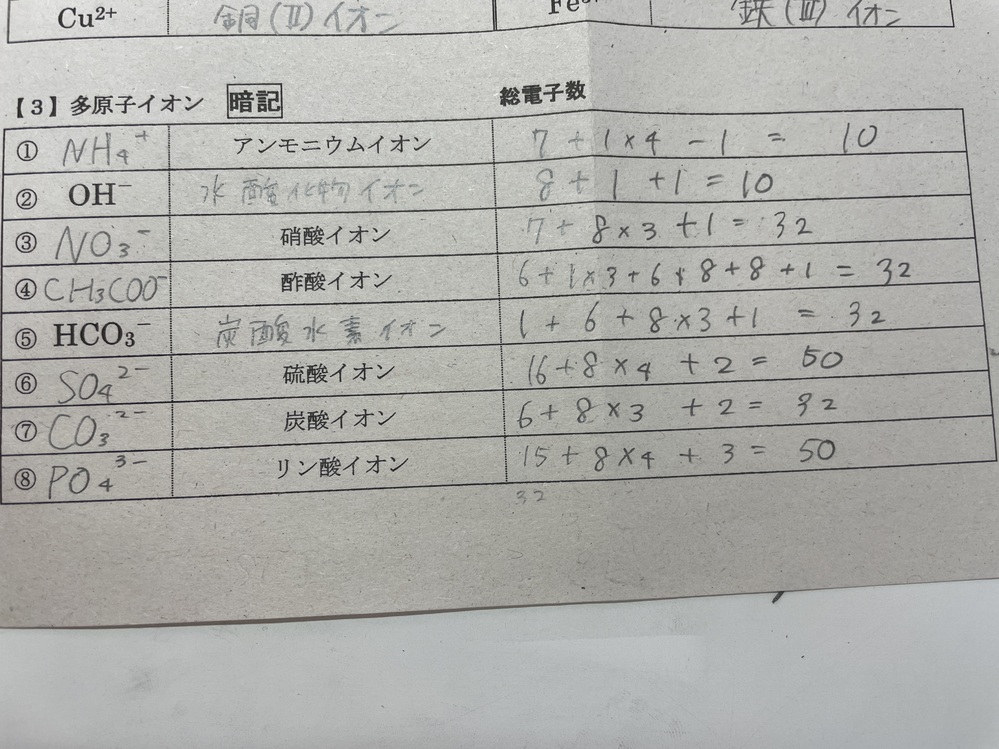 Cu²⁺ 銅(Ⅱ)イオン Fe³⁺ 鉄(Ⅲ)イオン
【3】多原子イオン 暗記 総電子数
① NH₄⁺ アンモニウムイオン 7+1×4-1=10
② OH⁻ 水酸化物イオン 8+1+1=10
③ NO₃⁻ 硝酸イオン 7+8×3+1=32
④ CH₃COO⁻ 酢酸イオン 6+1×3+6+8+8+1=32
⑤ HCO₃⁻ 炭酸水素イオン 1+6+8×3+1=32
⑥ SO₄²⁻ 硫酸イオン 16+8×4+2=50
⑦ CO₃²⁻ 炭酸イオン 6+8×3+2=32
⑧ PO₄³⁻ リン酸イオン 15+8×4+3=50
32